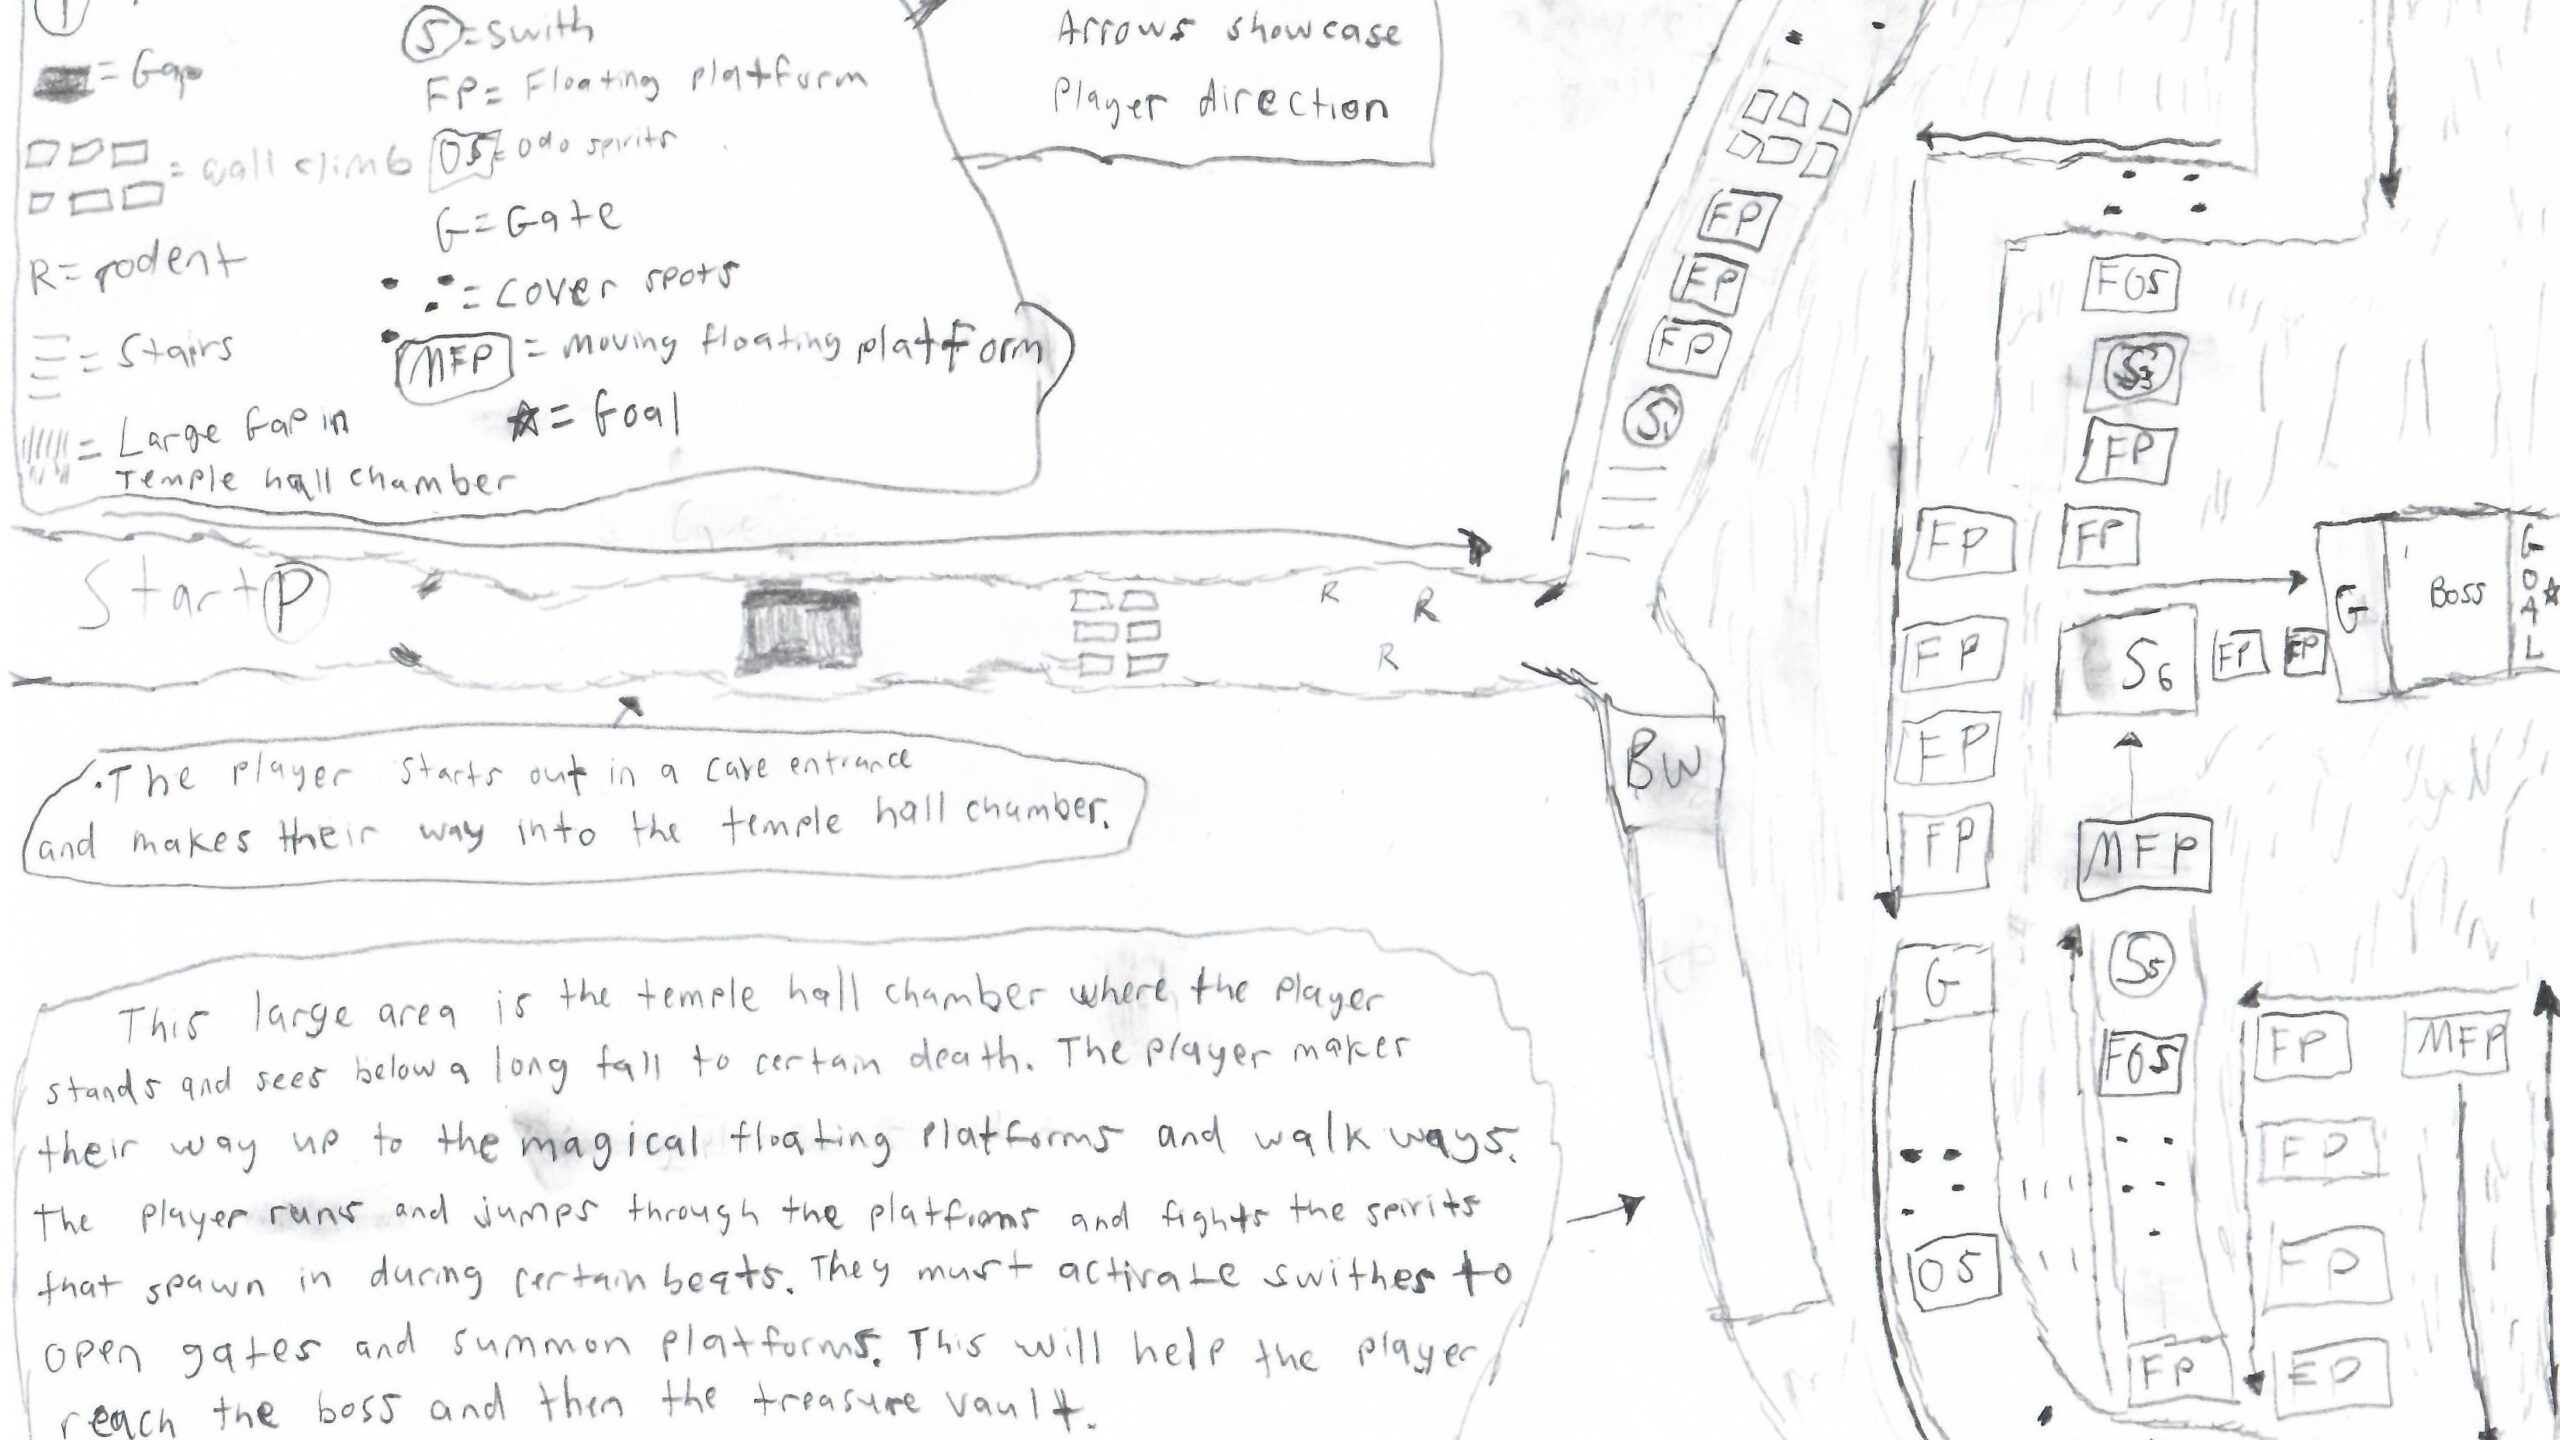 = Gap
= wall climb
R = rodent
= Stairs
= Large Gap in
Temple hall chamber
S = Swith
FP = Floating platform
OS = odo spirits
G = Gate
= cover spots
MFP = moving floating platform
= Goal
Arrows showcase
Player direction
Start P
R R
R
.The player starts out in a cave entrance
and makes their way into the temple hall chamber.
This large area is the temple hall chamber where the player
stands and sees below a long fall to certain death. The player makes
their way up to the magical floating platforms and walk ways.
The player runs and jumps through the platforms and fights the spirits
that spawn in during certain beats. They must activate swithes to
open gates and summon platforms. This will help the player
reach the boss and then the treasure vault.
FP
FP
FP
S1
BW
FP
FP
FP
FP
G
OS
FOS
FP
FP
S6 FP FP
G Boss GOAL
MFP
S5
FOS
FP
FP MFP
FP
FP
FP